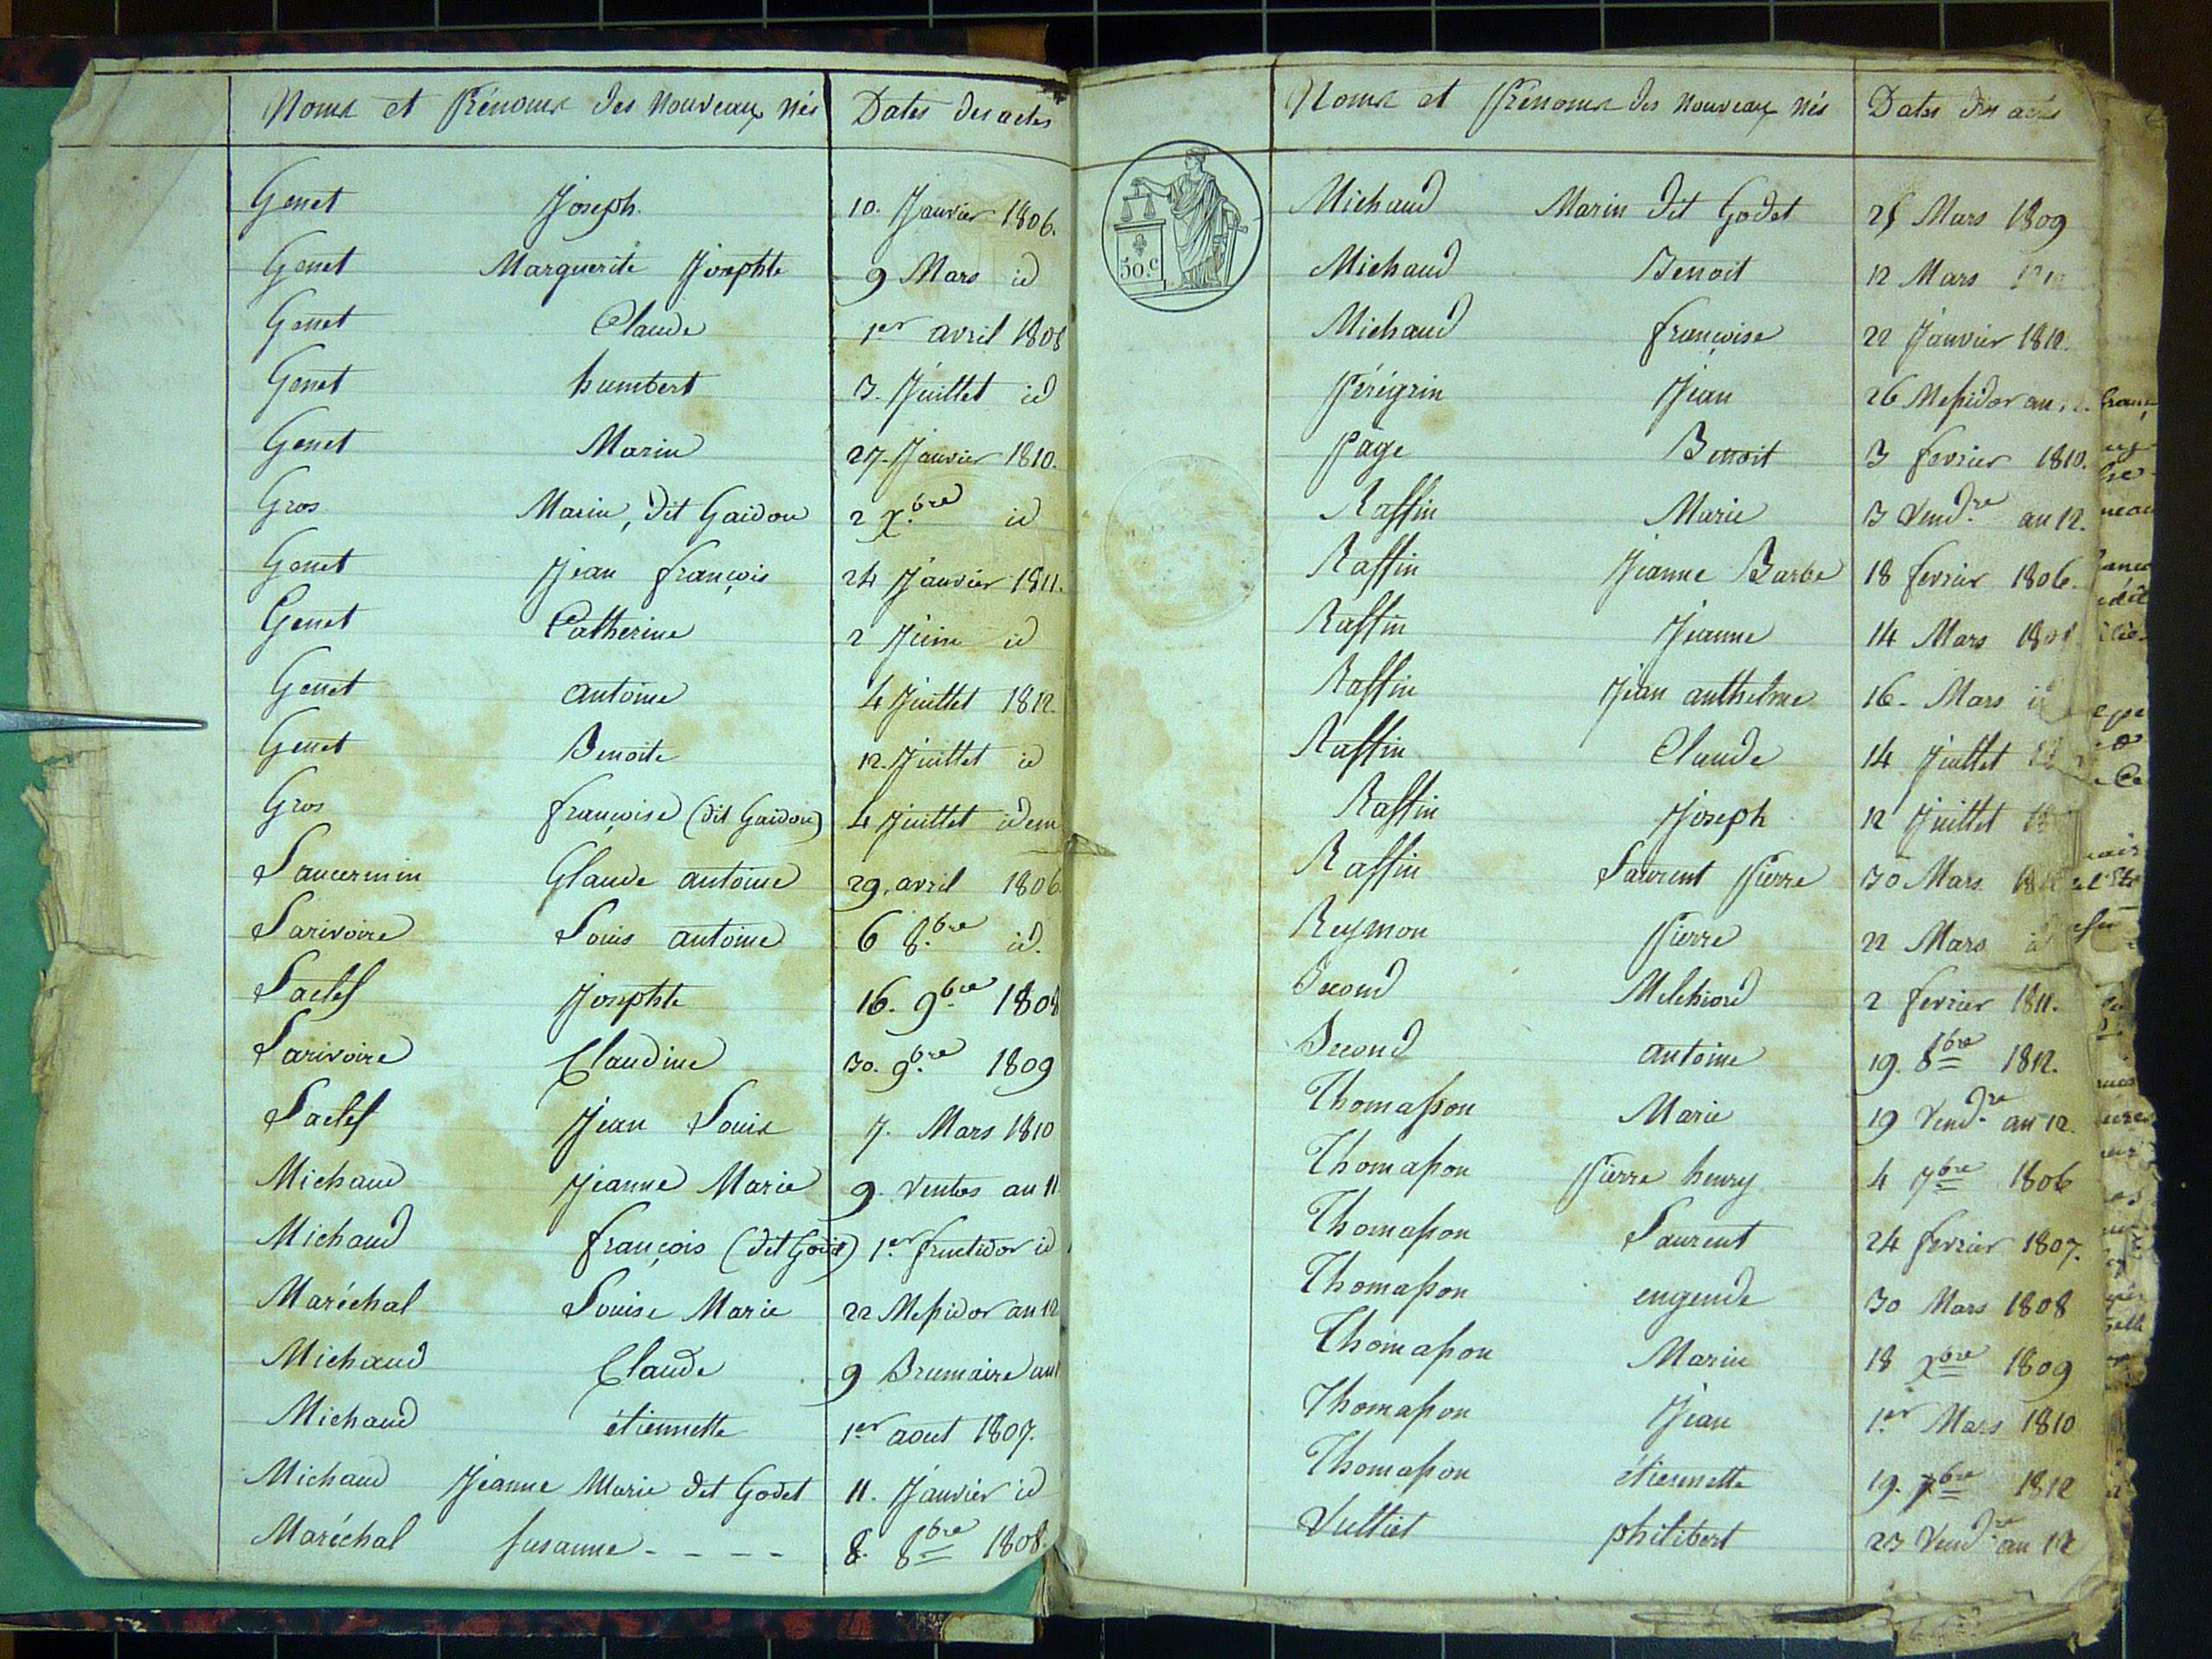 Noms et Prénoms des Nouveaux nés Dates des actes
Genet Joseph 10. Janvier 1806.
Genet Marguerite Josephte 9 Mars id
Genet Claude 1er avril 1808
Genet humbert 3. Juillet id
Genet Marin 27. Janvier 1810.
Gros Marin, dit Gaidon 2 Xbre id
Genet Jean françois 24 Janvier 1811.
Genet Catherine 2 Juin id
Genet antoine 4 Juillet 1812
Genet Benoite 12. Juillet id
Gros françoise (dit Gaidon) 4 Juillet idem
Lancermin Glaude antoine 29. avril 1806
Larivoire Louis antoine 6 8.bre id.
Laclef Josephte 16. 9bre 1808
Larivoire Claudine 30. 9.bre 1809
Laclef Jean Louis 7. Mars 1810
Michaud Jeanne Marie 9. Ventos an 11
Michaud françois (dit Godet) 1er fructidor id
Maréchal Louise Marie 22 Messidor an 12
Michaud Claude 9 Brumaire an
Michaud étiennette 1er aout 1807.
Michaud Jeanne Marie dit Godet 11. Janvier id
Maréchal susanne - - - - 8. 8bre 1808.
Noms et Prénoms des Nouveaux nés Dates des actes
50.c
Michaud Marin dit Godet Mars 1809
Michaud Benoit 12 Mars
Michaud françoise 22 Janvier 1812.
Pérégrin Jean 26 Messidor an
page Benoit 3 fevrier 1810.
Raffin Marie 3 Vend.re an 12.
Raffin Jeanne Barbe 18 fevrier 1806.
Raffin Jeanne 14 Mars
Raffin Jean anthelme 16. Mars id
Raffin Claude 14 Juillet
Raffin Joseph 12 Juillet
Raffin Laurent Pierre 30 Mars
Reymon Pierre 22 Mars id
Second Melchiord 2 fevrier 1811.
Second antoine 19. 8bre 1812.
Thomasson Marie 19 Vend.re an 12.
Thomasson Pierre henry 4 7bre 1806
Thomasson Laurent 24 fevrier 1807.
Thomasson engende 30 Mars 1808
Thomasson Marin 18 Xbre 1809
Thomasson Jean 1er Mars 1810
Thomasson étiennette 19. 7bre 1812
Vulliet philibert 23 Vend.re an 12